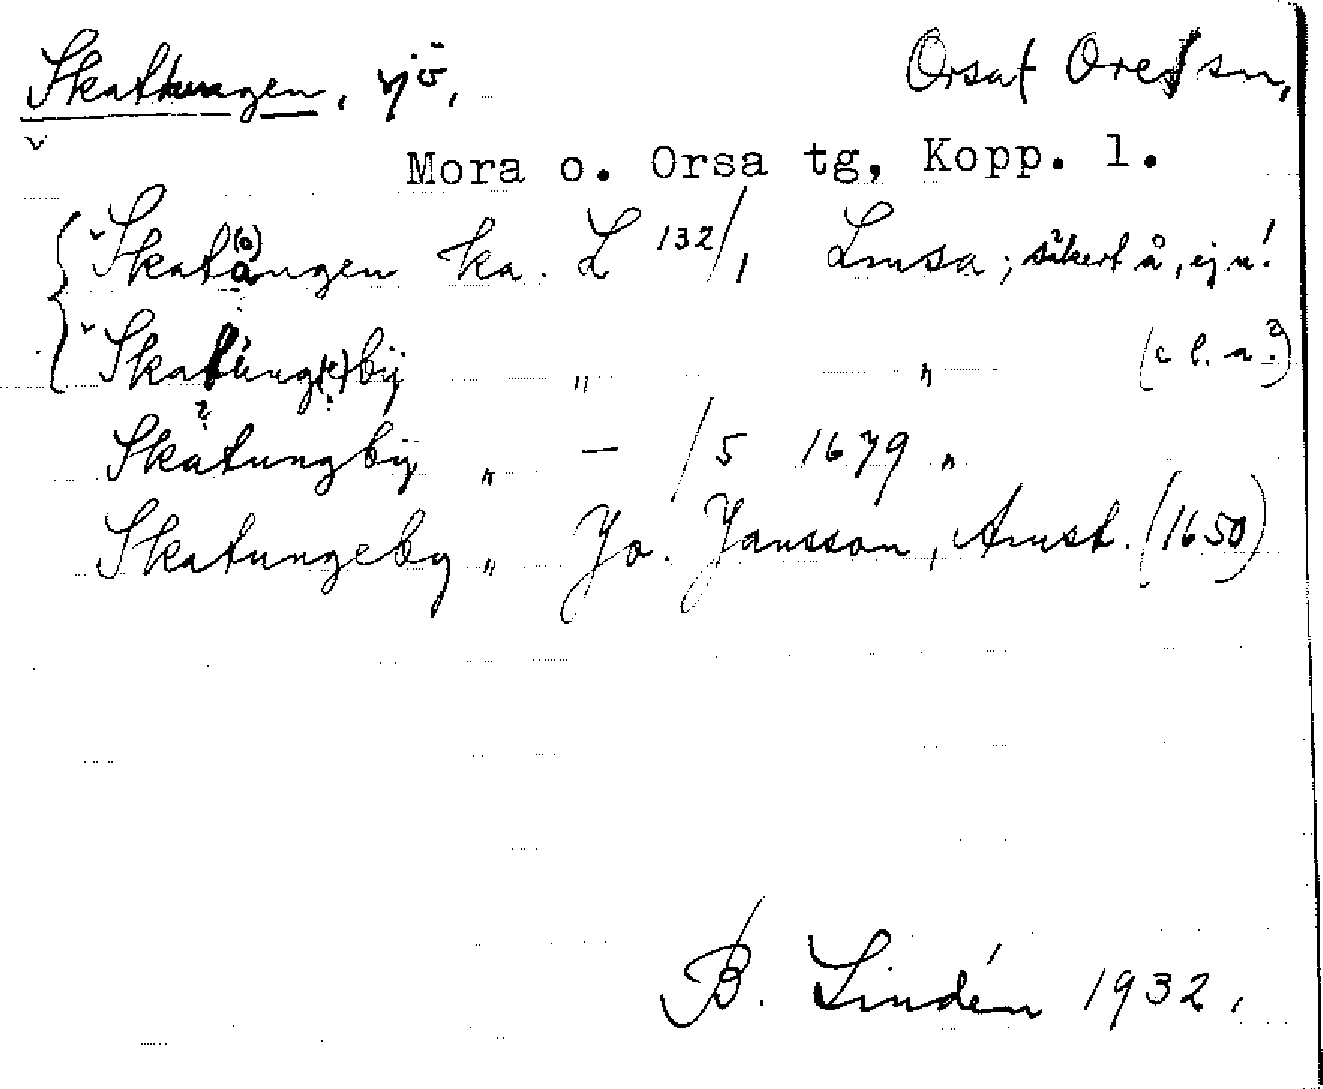 Skattungen, sjö, Orsa f Ore f sn,
Mora o. Orsa tg, Kopp. l.
Skatången ka. L 132/1 Lmsa; säkert å, ej u!
Skatung(e)by " " (c l. a?)
Skatungby " — /5 1679 "
Skatungeby " Jo. Jansson, Amst. (1650)
B. Lindén 1932.